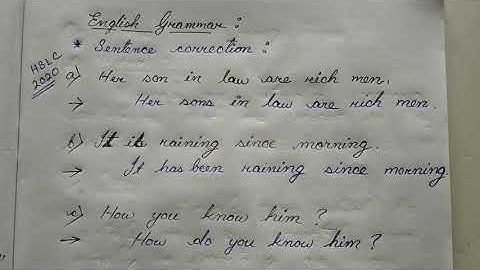 English Grammar :
* Sentence correction :
HSLC
2020
a) Her son in law are rich men.
→ Her sons in law are rich men.
b) It is raining since morning.
→ It has been raining since morning
c) How you know him ?
→ How do you know him ?